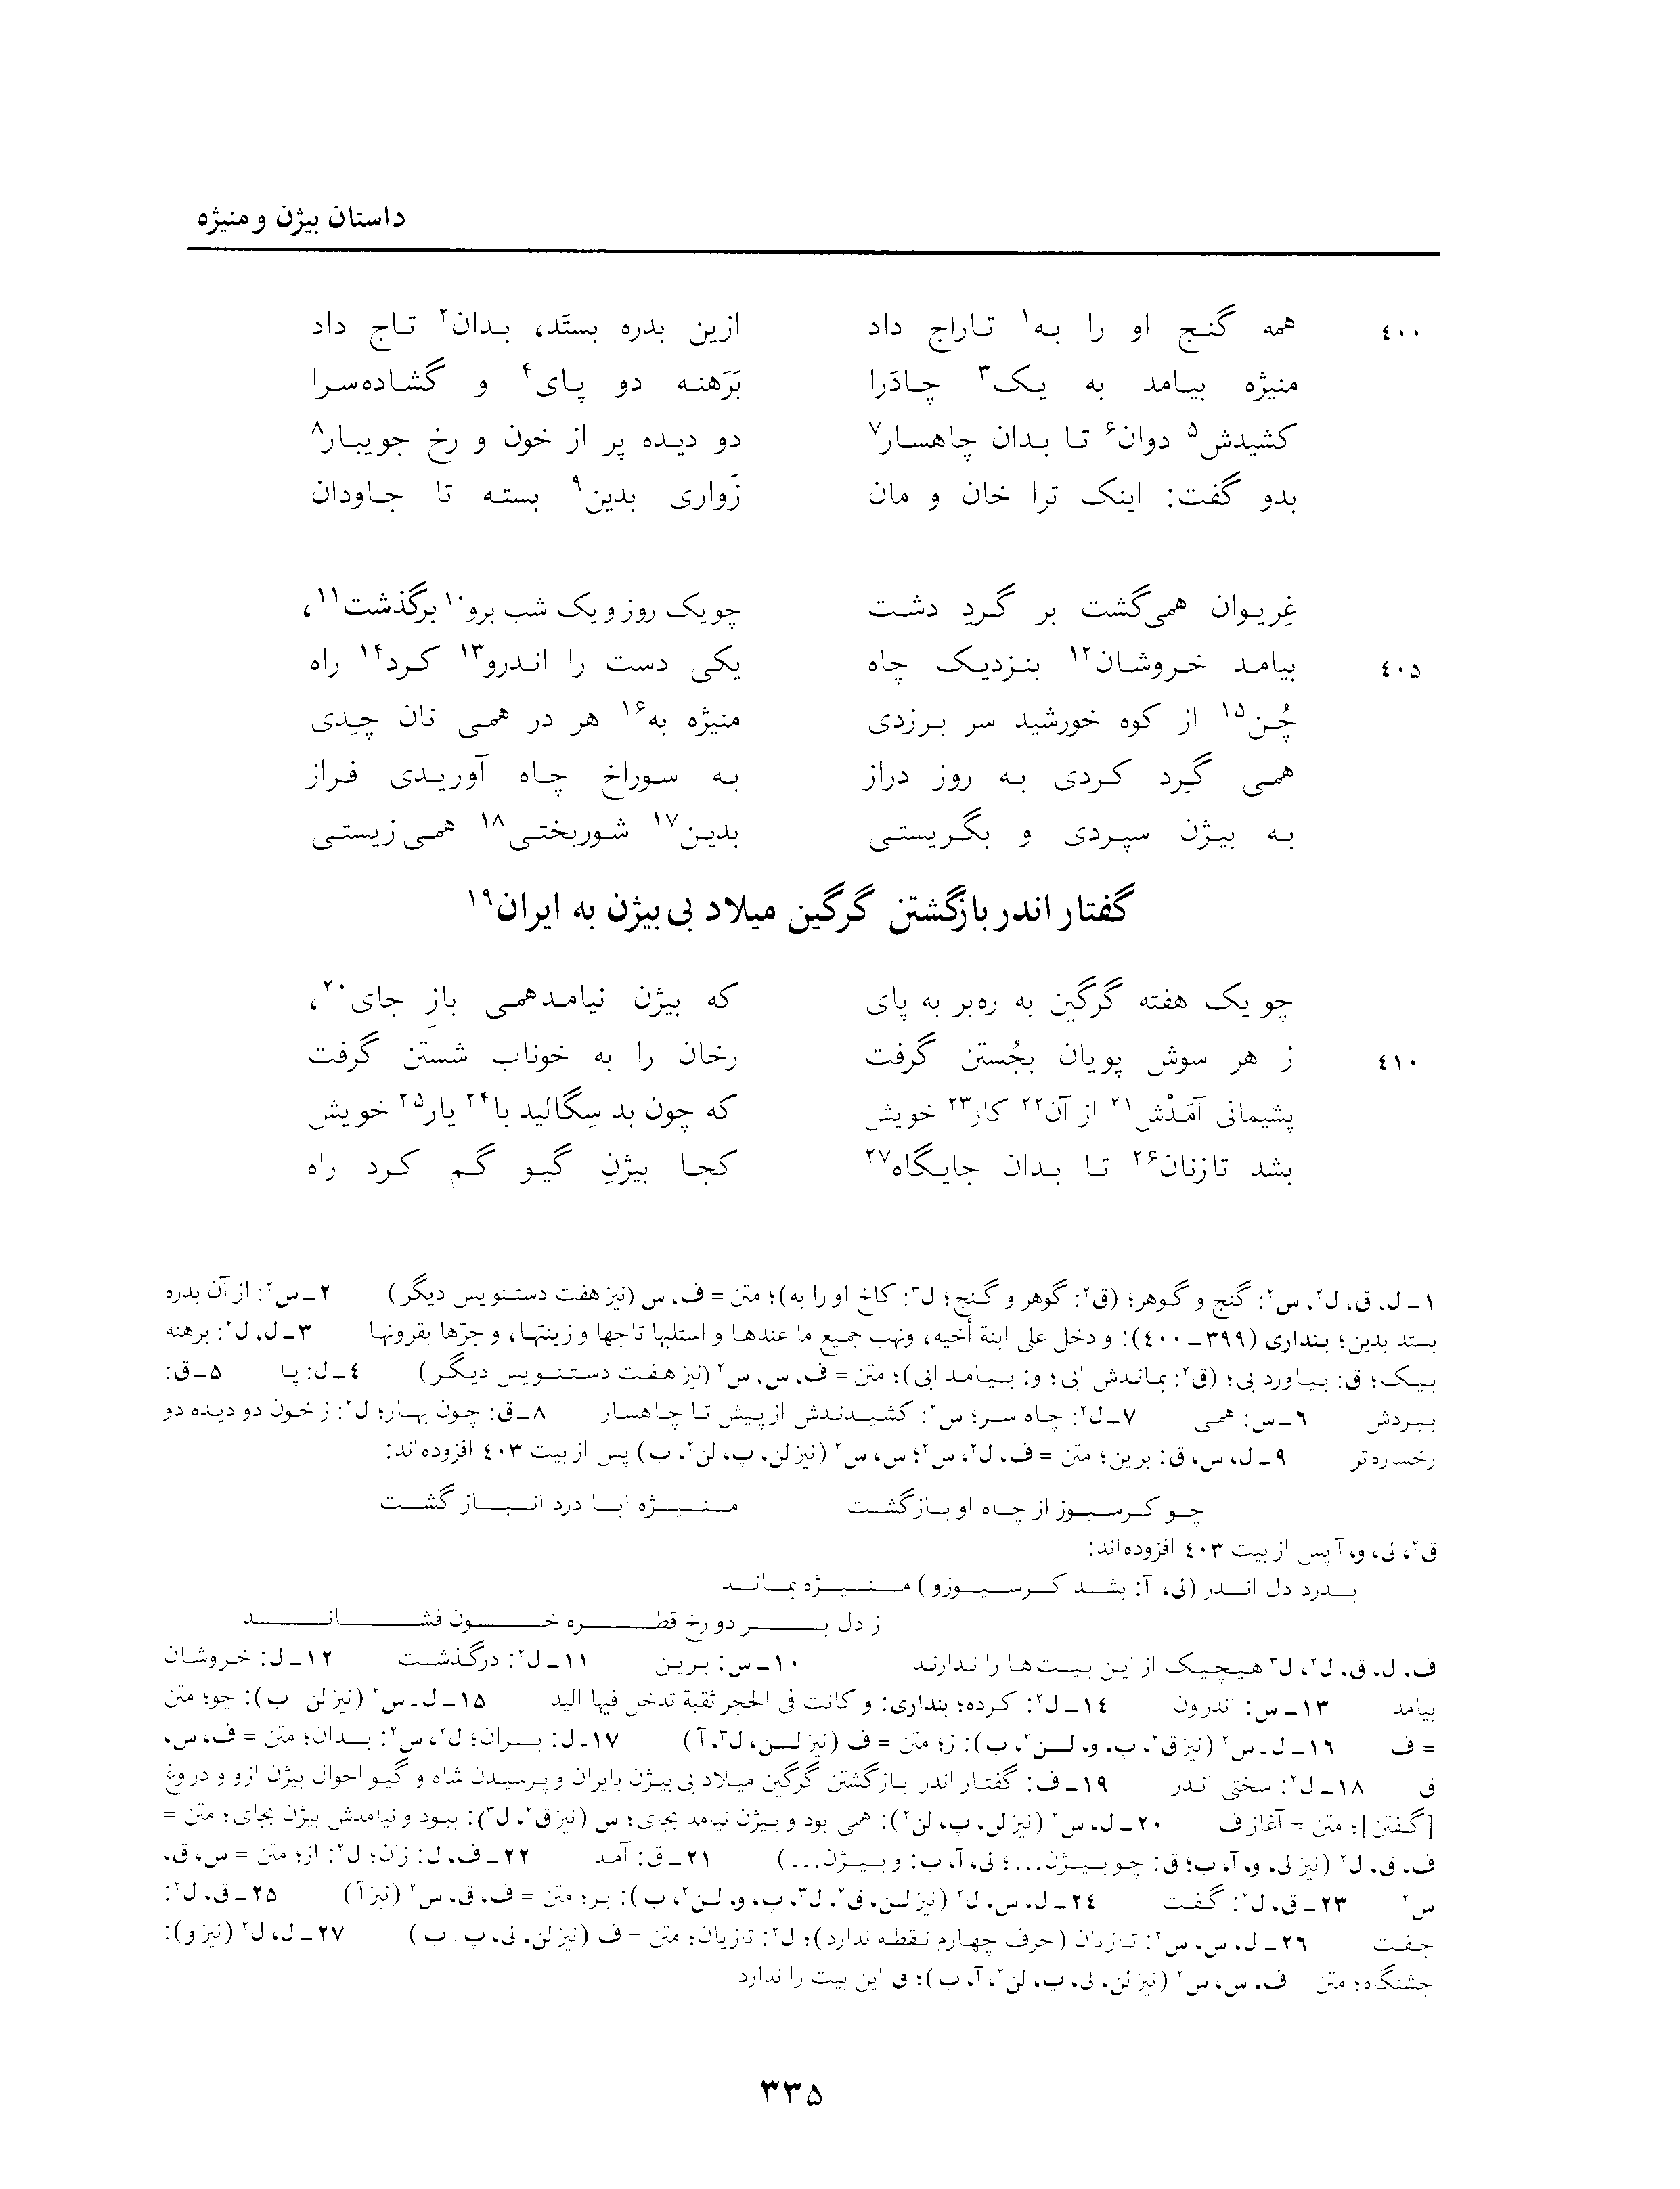 داستان بیژن و منیژه
۴۰۰ همه گنج او را به۱ تاراج داد ازین بدره بستَد، بدان۲ تاج داد
منیژه بیامد به یک۳ چادَرا بَرَهنه دو پای۴ و گشاده‌سرا
کشیدش۵ دوان۶ تا بدان چاهسار۷ دو دیده پر از خون و رخ جویبار۸
بدو گفت: اینک ترا خان و مان زَواری بدین۹ بسته تا جاودان
غِریوان همی‌گشت بر گردِ دشت چو یک روز و یک شب برو۱۰ برگذشت۱۱،
۴۰۵ بیامد خروشان۱۲ بنزدیک چاه یکی دست را اندرو۱۳ کرد۱۴ راه
چُن۱۵ از کوه خورشید سر برزدی منیژه به۱۶ هر در همی نان چِدی
همی گِرد کردی به روز دراز به سوراخ چاه آوریدی فراز
به بیژن سپردی و بگریستی بدین۱۷ شوربختی۱۸ همی زیستی
گفتار اندر بازگشتن گرگین میلاد بی بیژن به ایران۱۹
چو یک هفته گرگین به ره‌بر به پای که بیژن نیامدهمی بازِ جای۲۰،
۴۱۰ ز هر سوش پویان بجُستن گرفت رخان را به خوناب شستن گرفت
پشیمانی آمَدْش۲۱ از آن۲۲ کار۲۳ خویش که چون بد سِگالید با۲۴ یار۲۵ خویش
بشد تازنان۲۶ تا بدان جایگاه۲۷ کجا بیژنِ گیو گم کرد راه
۱ـ ل، ق، ل۲، س۲: گنج و گوهر؛ (ق۲: گوهر و گنج؛ ل۳: کاخ او را به)؛ متن = ف، س (نیز هفت دستنویس دیگر) ۲ـ س۲: از آن بدره
بستد بدین؛ بنداری (۳۹۹ـ۴۰۰): و دخل علی ابنة أخیه، ونهب جمیع ما عندها و استلبها تاجها و زینتها، و جرّها بقرونها ۳ـ ل، ل۲: برهنه
بیک؛ ق: بیاورد بی؛ (ق۲: بماندش ابی؛ و: بیامد ابی)؛ متن = ف، س، س۲ (نیز هفت دستنویس دیگر) ۴ـ ل: پا ۵ـ ق:
ببردش ۶ـ س: همی ۷ـ ل۲: چاه سر؛ س۲: کشیدندش از پیش تا چاهسار ۸ـ ق: چون بهار؛ ل۲: ز خون دو دیده دو
رخساره تر ۹ـ ل، س، ق: برین؛ متن = ف، ل۲، س۲؛ س، س۲ (نیز لن، پ، لن۲، ب) پس از بیت ۴۰۳ افزوده‌اند:
چو کرسیوز از چاه او بازگشت منیژه ابا درد انباز گشت
ق۲، لی، و، آ پس از بیت ۴۰۳ افزوده‌اند:
بدرد دل اندر (لی، آ: بشد کرسیوزو) منیژه بماند
ز دل بر دو رخ قطره خون فشاند
ف، ل، ق، ل۲، ل۳ هیچیک از این بیت‌ها را ندارند ۱۰ـ س: برین ۱۱ـ ل۲: درگذشت ۱۲ـ ل: خروشان
بیامد ۱۳ـ س: اندرون ۱۴ـ ل۲: کرده؛ بنداری: و کانت فی الحجر ثقبة تدخل فیها الید ۱۵ـ ل ـ س۲ (نیز لن ـ ب): چو؛ متن
= ف ۱۶ـ ل ـ س۲ (نیز ق۲، پ، و، لن۲، ب): ز؛ متن = ف (نیز لن، ل۳، آ) ۱۷ـ ل: بران؛ ل۲، س۲: بدان؛ متن = ف، س،
ق ۱۸ـ ل۲: سختی اندر ۱۹ـ ف: گفتار اندر بازگشتن گرگین میلاد بی بیژن بایران و پرسیدن شاه و گیو احوال بیژن ازو و دروغ
[گفتن]؛ متن = آغاز ف ۲۰ـ ل، س۲ (نیز لن، پ، لن۲): همی بود و بیژن نیامد بجای؛ س (نیز ق۲، ل۳): ببود و نیامدش بیژن بجای؛ متن =
ف، ق، ل۲ (نیز لی، و، آ، ب؛ ق: چو بیژن...؛ لی، آ، ب: و بیژن...) ۲۱ـ ق: آمد ۲۲ـ ف، ل: زان؛ ل۲: از؛ متن = س، ق،
س۲ ۲۳ـ ق، ل۲: گفت ۲۴ـ ل، س، ل۲ (نیز لن، ق۲، ل۳، پ، و، لن۲، ب): بر؛ متن = ف، ق، س۲ (نیز آ) ۲۵ـ ق، ل۲:
جفت ۲۶ـ ل، س، س۲: تازیان (حرف چهارم نقطه ندارد)؛ ل۲: تازیان؛ متن = ف (نیز لن، لی، پ ـ ب) ۲۷ـ ل، ل۲ (نیز و):
جشنگاه؛ متن = ف، س، س۲ (نیز لن، لی، پ، لن۲، آ، ب)؛ ق این بیت را ندارد
۳۳۵